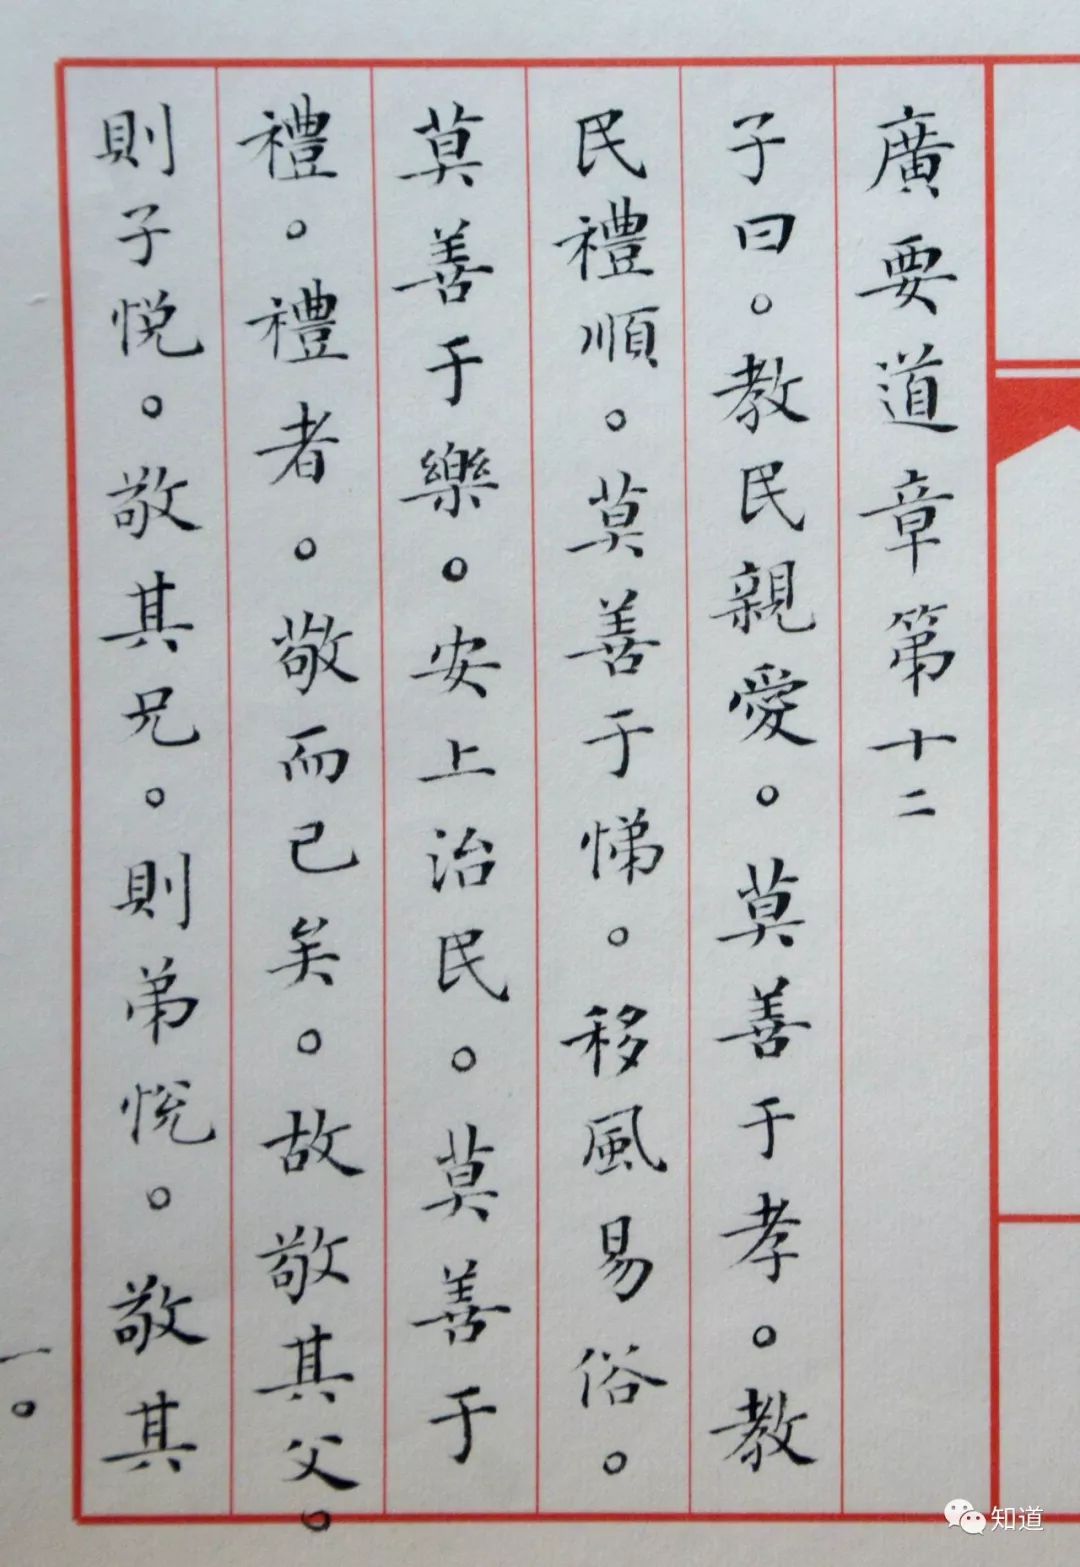 廣要道章第十二
子曰。教民親愛。莫善于孝。教
民禮順。莫善于悌。移風易俗。
莫善于樂。安上治民。莫善于
禮。禮者。敬而已矣。故敬其父。
則子悅。敬其兄。則弟悅。敬其
一。
知道